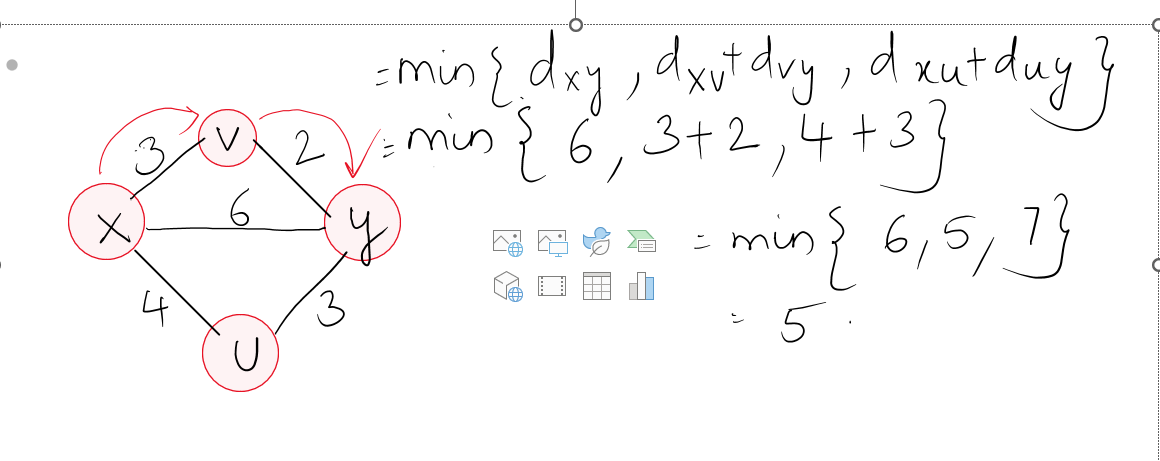 = min{ dxy , dxv + dvy , dxu + duy }
= min { 6 , 3 + 2 , 4 + 3 }
= min{ 6 , 5 , 7 }
= 5 .
V
3
2
X
6
y
4
3
U